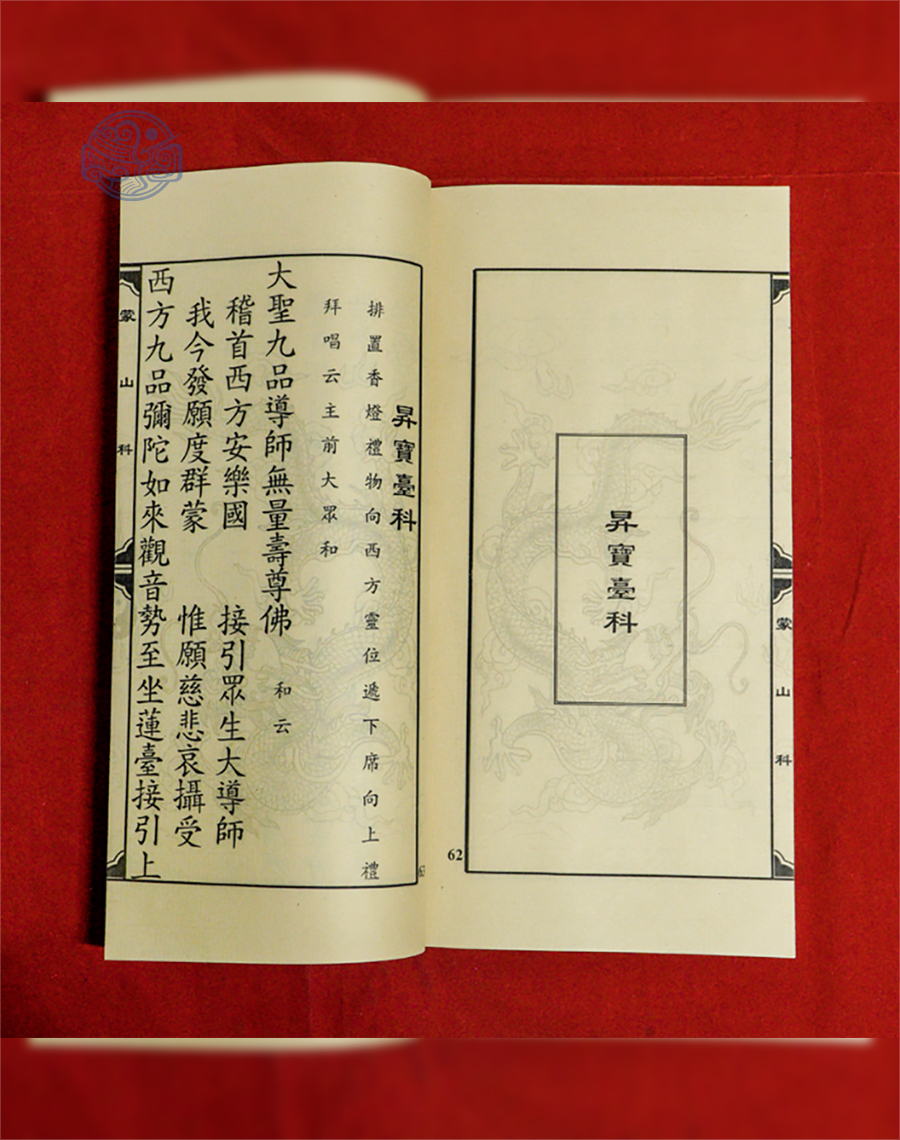 昇寶臺科
蒙山科
62
昇寶臺科
排置香燈禮物向西方靈位遞下席向上禮
拜唱云主前大眾和
大聖九品導師無量壽尊佛 和云
稽首西方安樂國 接引眾生大導師
我今發願度群蒙 惟願慈悲哀攝受
西方九品彌陀如來觀音勢至坐蓮臺接引上
蒙山科
63